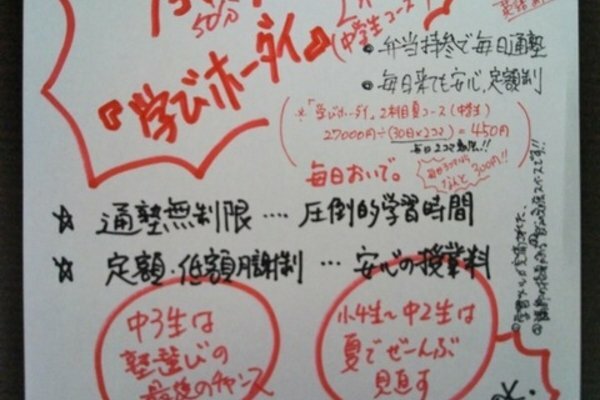 50分
(中学生コース)
『学びホーダイ』
• 弁当持参で毎日通塾
• 毎日来ても安心、定額制
※「学びホーダイ」2科目夏コース(中学生)
27000円÷(30日×2コマ)=450円
毎日おいで。
なんと300円!!
☆ 通塾無制限 …. 圧倒的学習時間
☆ 定額・低額月謝制 … 安心の授業料
中3生は
塾選びの
最後のチャンス
小4生〜中2生は
夏でぜーんぶ
見直す